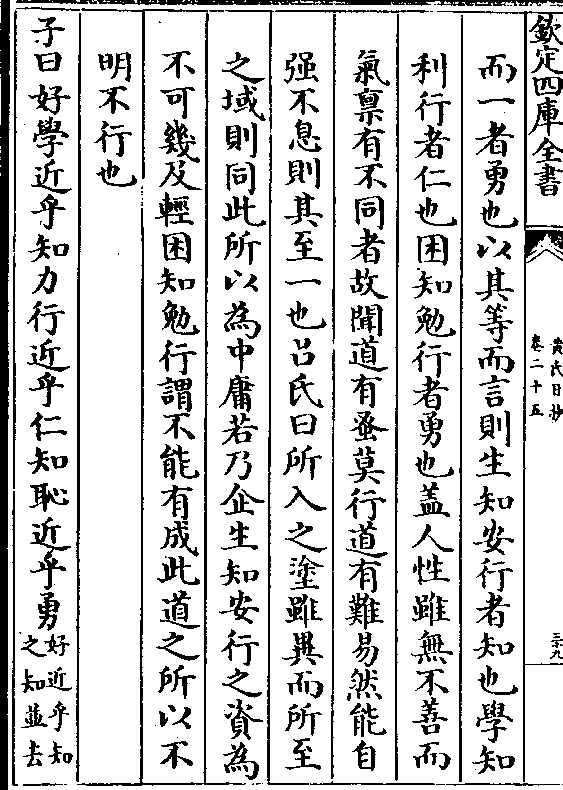 欽定四庫全書
黄氏日抄
卷二十五
而一者勇也以其等而言則生知安行者知也學知
利行者仁也困知勉行者勇也蓋人性雖無不善而
氣禀有不同者故聞道有蚤莫行道有難易然能自
强不息則其至一也吕氏曰所入之塗雖異而所至
之域則同此所以為中庸若乃企生知安行之資為
不可幾及輕困知勉行謂不能有成此道之所以不
明不行也
子曰好學近乎知力行近乎仁知恥近乎勇好近乎知
之知並去